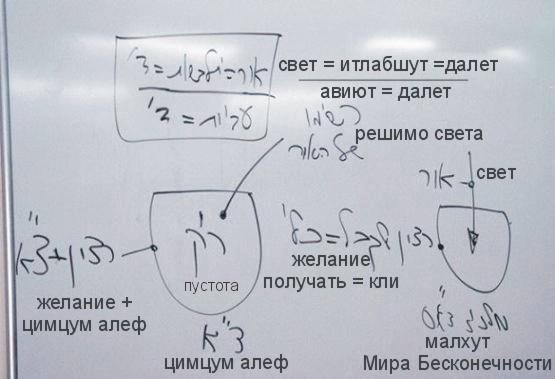 אור = התלבשות = ד'
свет = итлабшут =далет
עביות = ד'
авиют = далет
רשימו
של האור
решимо света
אור
свет
רצון + צ"א
желание +
цимцум алеф
ריק
пустота
רצון לקבל = כלי
желание
получать = кли
צ"א
цимцум алеф
малхут
Мира Бесконечности